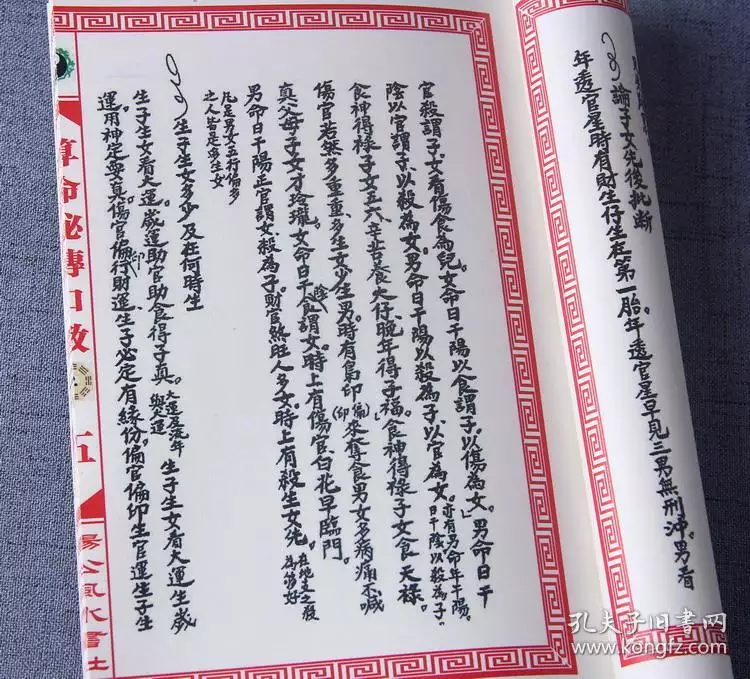 論子女先後批斷
年透官星時有財生仔生在第一胎。年透官星早見三男無刑沖。男看
官殺謂子女看傷食為兒。女命日干陽以食謂子。以傷為女。男命日干
陰以官謂子以殺為女。男命日干陽以殺為子。以官為女。亦有男命年干陽。日干陰以殺為子。
食神得祿子女五六、辛苦養大仔、晚年得子福。食神得祿子女食天祿。
傷官若然多重重、多生女少生男。時有梟印(偏印)來奪食男女多病痛不喊
真父母子女才玲瓏。女命日干陰食謂女。時上有傷官、白花早臨門。
男命日干陽正官謂女殺為子財官煞旺人多女。時上有殺生女先。在地支之殺為第好
凡是男女五行偏多
之人皆定多生女
生子生女多少及在何時生
生子生女看大運。歲運助官助食得子真。大運及流年與大運 生子生女看大運生歲
運用神定與真。傷官偏印行財運生子必定有緣份。偏官偏印生官運生子生
算命秘傳口訣
五
楊公風水書社
孔夫子旧书网
www.kongfz.com